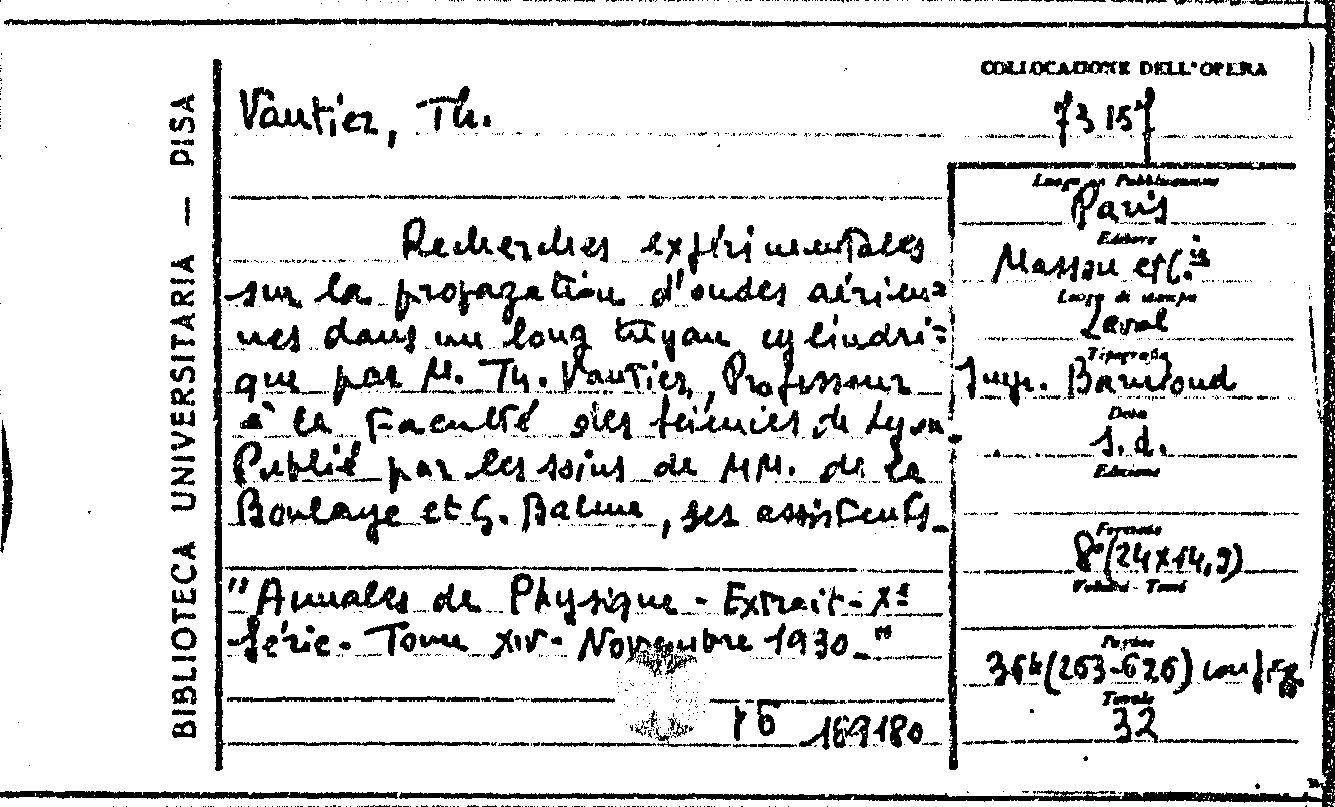 BIBLIOTECA UNIVERSITARIA — PISA
COLLOCAZIONE DELL'OPERA
Vautier, Th.
73 157
Luogo di Pubblicazione
Paris
Recherches expérimentales
Editore
Masson et C.ie
sur la propagation d'ondes aérien=
Luogo di stampa
Laval
nes dans un long tuyau cylindri=
Tipografia
que par M. Th. Vautier, Professeur
Impr. Barnéoud
à la Faculté des sciences de Lyon.
Data
s.d.
Publié par les soins de MM. de la
Edizione
Boulaye et G. Balme, ses assistents.
Formato
8°(24x14,9)
Volumi - Tomi
"Annales de Physique - Extrait - Xe
Série - Tome XIV - Novembre 1930."
Pagine
364(263-626) con fig.
Tavole
32
169180